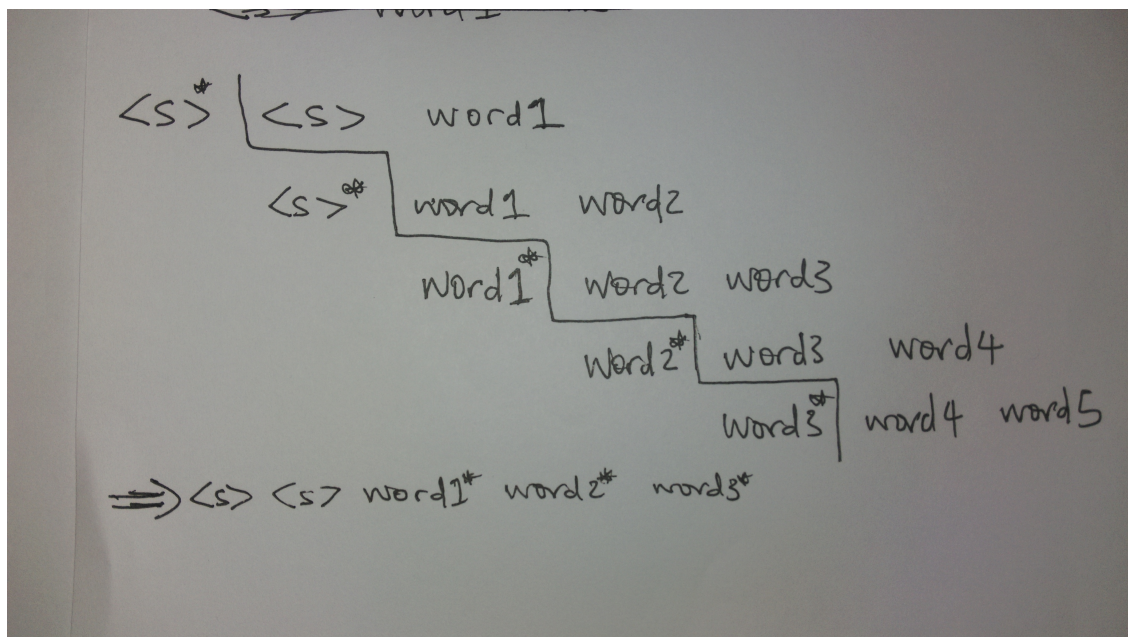 <s> word1
<s>* <s> word1
<s>* word1 word2
word1* word2 word3
word2* word3 word4
word3* word4 word5
⇒ <s> <s> word1* word2* word3*